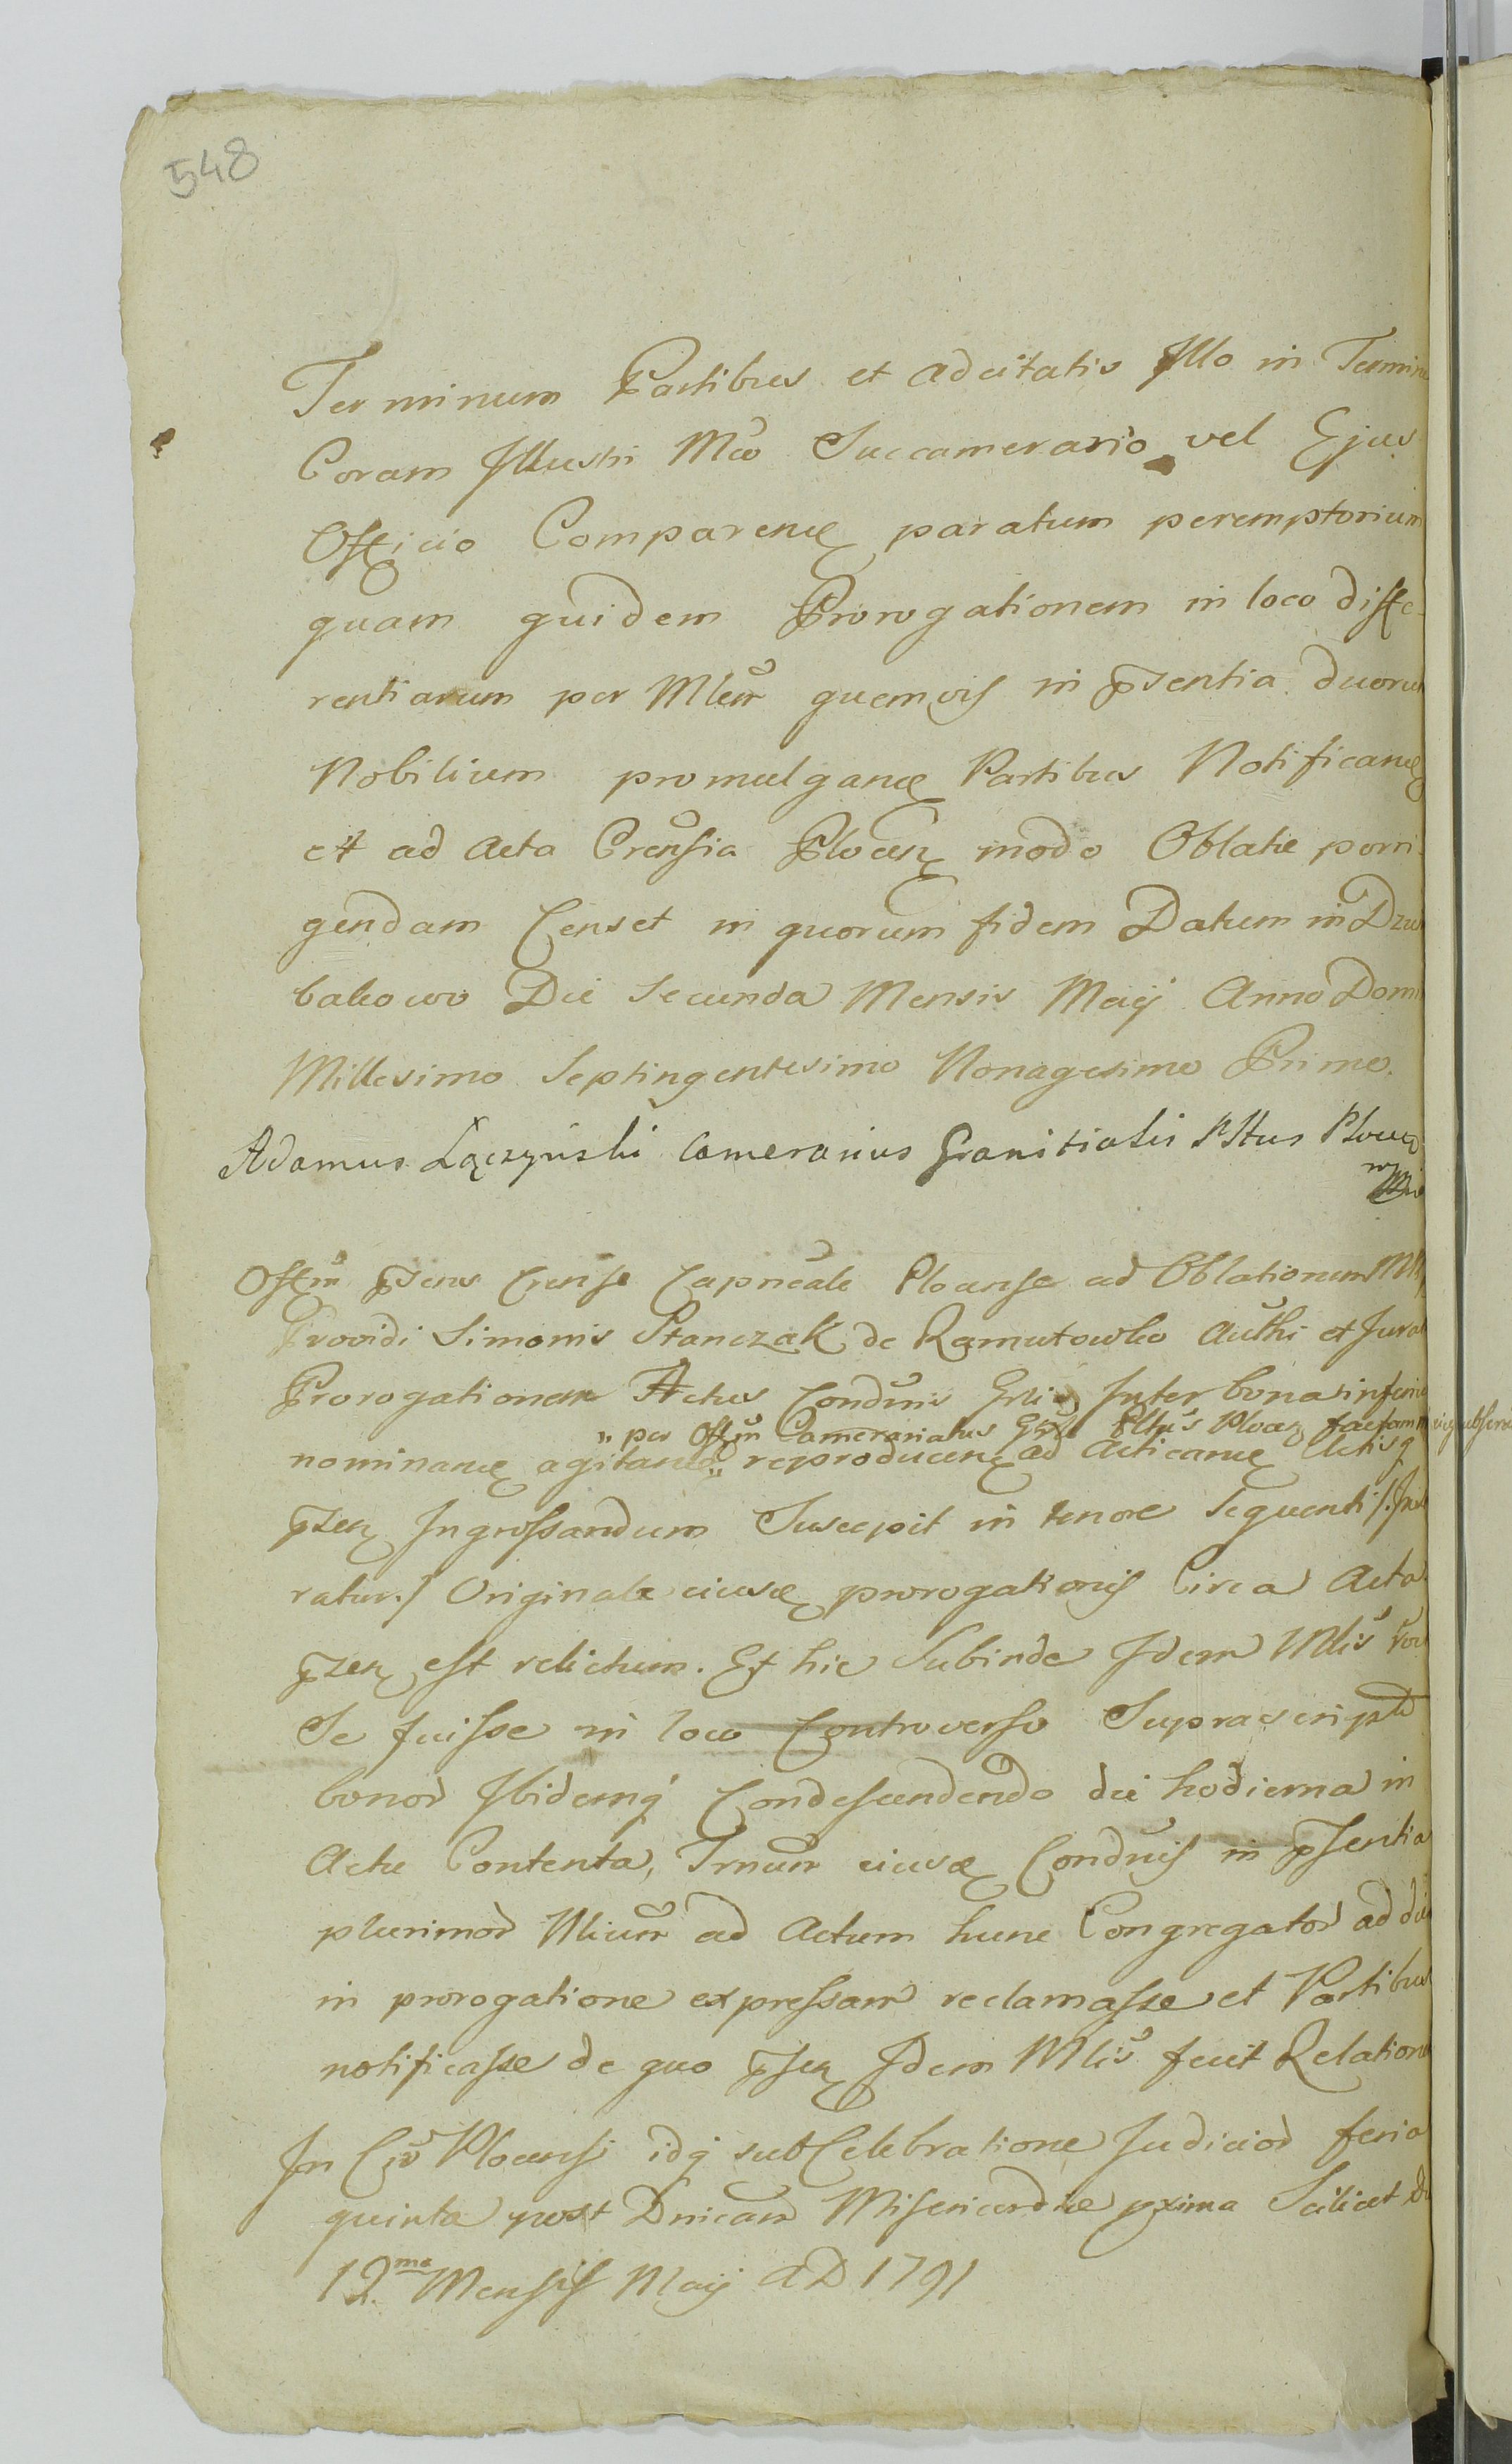 548
Terminum Partibus et adcitatis Illo in Termin
Coram Illustri Mco Succamerario vel Ejus
Officio Comparend paratum peremptorium
quam quidem Prorogationem in loco diffe-
rentiarum per Mlem quemvis in pñsentia duoru
Nobilium promulgand Partibus Notificand
et ad Acta Crensia Plocen modo Oblatæ porri-
gendam Censet in quorum fidem Datum in Dzu
bakowo Die Secunda Mensis Maij Anno Domi
Millesimo Septingentesimo Nonagesimo Primo.
Adamus Łączyński Camerarius Granitialis Pltus Plocen
mpp
Offm psens Crense Capneale Plocense ad Oblationem Mli
Providi Simonis Stanczak de Ramutowko Authi et Jurat
Prorogationem Actus Condnis Grlis Inter bona inferius
„ per Offm Camerariatus Grl Pltus Plocen factam
nominand agitand „ reproducen ad Acticand Actisq
psen Ingrossandum Suscepit in tenore Sequenti /.Inse
ratur./ Originale eiusd prorogationis Circa Acta
psen est relictum. Et hic Subinde Idem Mlis
Se fuisse in loco Controverso Suprascript
bonor Ibidemq Condescendendo die hodierna in
Actu Contenta, Trnum eiusd Condnis in psentia
plurimor Nlium ad Actum hunc Congregator ad die
in prorogatione expressam reclamasse et Partibus
notificasse de quo psen Idem Mlis fecit Relatione
In C Plocensi idq sub Celebratione Judicior feria
quinta post Dnicam Misericordiæ pxima Scilicet di
12.ma Mensis Maij AD 1791